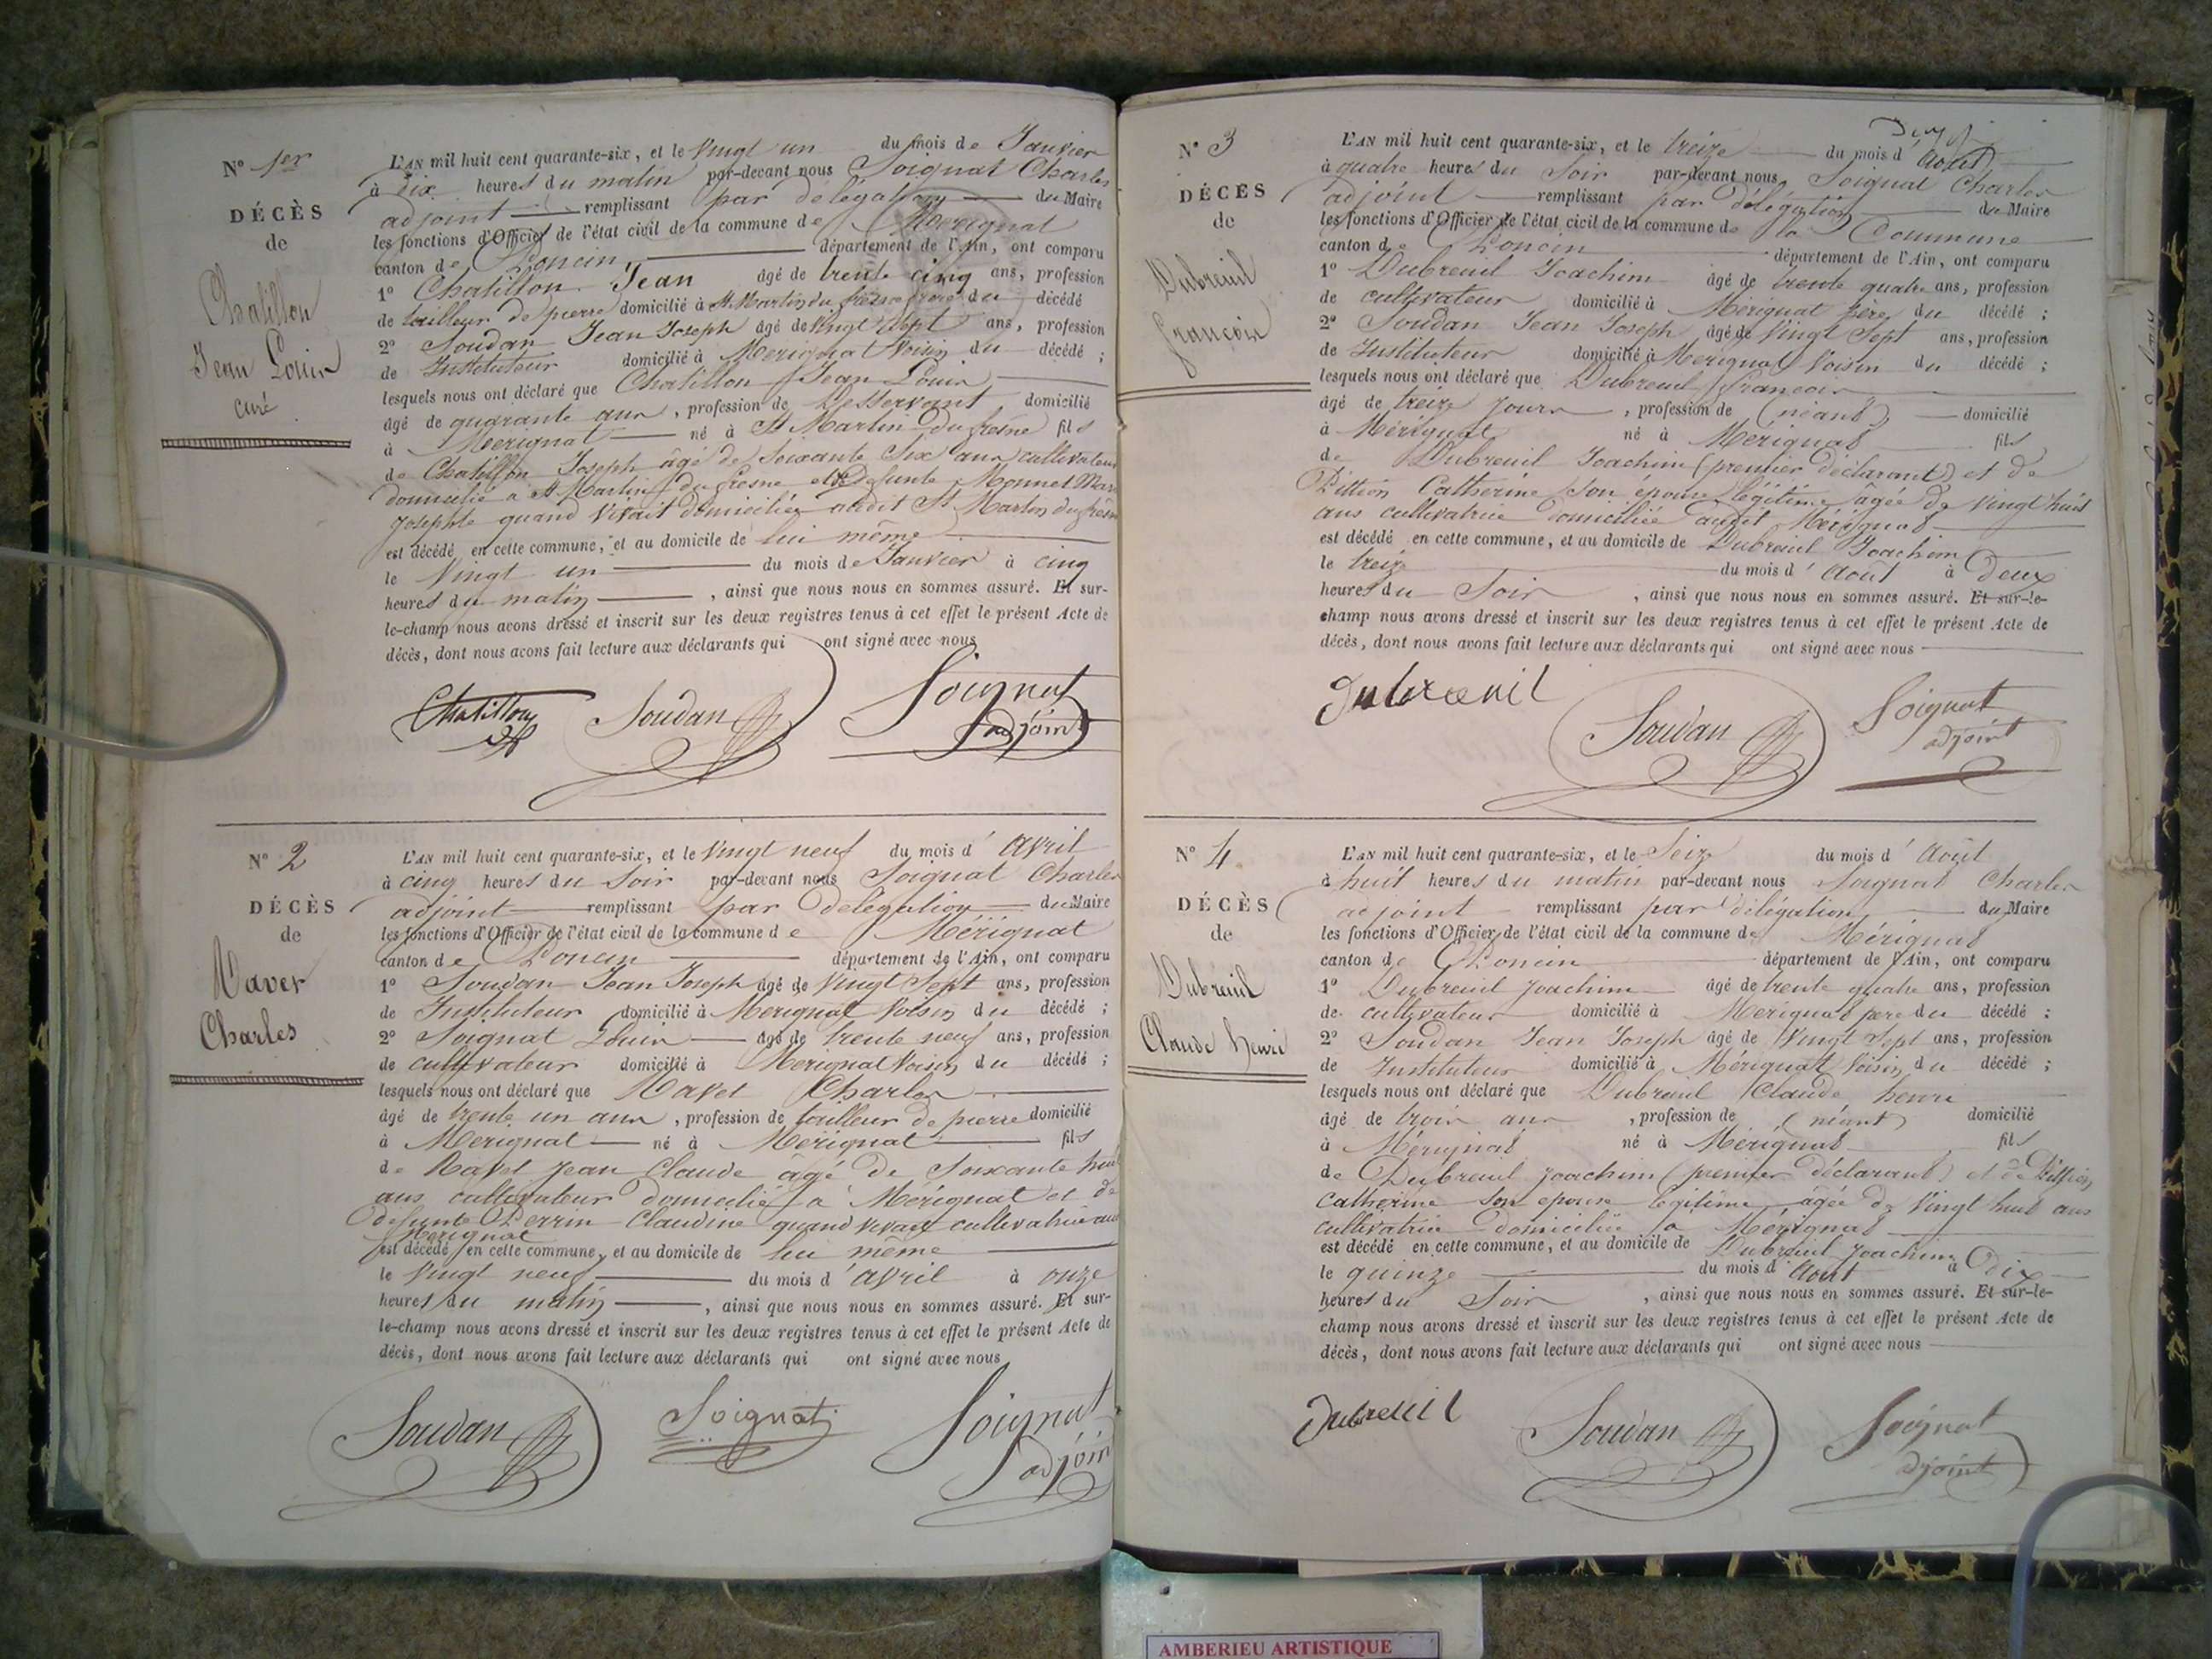 N° 1er
DÉCÈS
de
Chatillon
Jean Louis
curé
L'AN mil huit cent quarante-six, et le Vingt un du mois de Janvier
à dix heures du matin par-devant nous Soignat Charles
adjoint remplissant par délégation du Maire
les fonctions d'Officier de l'état civil de la commune de Mérignat
canton de Poncin département de l'Ain, ont comparu
1° Chatillon Jean âgé de trente cinq ans, profession
de tailleur de pierre domicilié à St Martin du fresne frère du décédé
2° Soudan Jean Joseph âgé de Vingt Sept ans, profession
de Instituteur domicilié à Mérignat Voisin du décédé ;
lesquels nous ont déclaré que Chatillon Jean Louis
âgé de quarante ans, profession de Desservant domicilié
à Mérignat né à St Martin du fresne fils
de Chatillon Joseph âgé de Soixante Six ans cultivateur
domicilié à St Martin du fresne et de Defunte Monnet Marie
Josephte quand Vivait domiciliée audit St Martin du fresne
est décédé en cette commune, et au domicile de lui même
le Vingt un du mois de Janvier à cinq
heures du matin, ainsi que nous nous en sommes assuré. Et sur-
le-champ nous avons dressé et inscrit sur les deux registres tenus à cet effet le présent Acte de
décès, dont nous avons fait lecture aux déclarants qui ont signé avec nous
Chatillon Soudan Soignat
adjoint
N° 2
DÉCÈS
de
Ravet
Charles
L'AN mil huit cent quarante-six, et le Vingt neuf du mois d'avril
à cinq heures du Soir par-devant nous Soignat Charles
adjoint remplissant par Délégation du Maire
les fonctions d'Officier de l'état civil de la commune de Mérignat
canton de Poncin département de l'Ain, ont comparu
1° Soudan Jean Joseph âgé de Vingt Sept ans, profession
de Instituteur domicilié à Mérignat Voisin du décédé ;
2° Soignat Louis âgé de trente neuf ans, profession
de cultivateur domicilié à Mérignat Voisin du décédé ;
lesquels nous ont déclaré que Ravet Charles
âgé de trente un ans, profession de tailleur de pierre domicilié
à Mérignat né à Mérignat fils
de Ravet Jean Claude âgé de Soixante huit
ans cultivateur domicilié à Mérignat et de
defunte Perrin Claudine quand vivait cultivatrice
Mérignat
est décédé en cette commune, et au domicile de lui même
le Vingt neuf du mois d'avril à onze
heures du matin, ainsi que nous nous en sommes assuré. Et sur-
le-champ nous avons dressé et inscrit sur les deux registres tenus à cet effet le présent Acte de
décès, dont nous avons fait lecture aux déclarants qui ont signé avec nous
Soudan Soignat Soignat
adjoint
N° 3
DÉCÈS
de
Dubreuil
françois
L'AN mil huit cent quarante-six, et le treize du mois d'Août
à quatre heures du Soir par-devant nous Soignat Charles
adjoint remplissant par Délégation du Maire
les fonctions d'Officier de l'état civil de la commune de la Commune
canton de Poncin département de l'Ain, ont comparu
1° Dubreuil Joachim âgé de trente quatre ans, profession
de cultivateur domicilié à Mérignat père du décédé ;
2° Soudan Jean Joseph âgé de Vingt Sept ans, profession
de Instituteur domicilié à Mérignat Voisin du décédé ;
lesquels nous ont déclaré que Dubreuil françois
âgé de treize jours, profession de (néant) domicilié
à Mérignat né à Mérignat fils
de Dubreuil Joachim (premier déclarant) et de
Catherine Son épouse légitime âgée de Vingt huit
ans cultivatrice domiciliée audit Mérignat
est décédé en cette commune, et au domicile de Dubreuil Joachim
le treize du mois d'Août à Deux
heures du Soir, ainsi que nous nous en sommes assuré. Et sur-le-
champ nous avons dressé et inscrit sur les deux registres tenus à cet effet le présent Acte de
décès, dont nous avons fait lecture aux déclarants qui ont signé avec nous
Dubreuil Soudan Soignat
adjoint
N° 4.
DÉCÈS
de
Dubreuil
Claude henri
L'AN mil huit cent quarante-six, et le Seize du mois d'Août
à huit heures du matin par-devant nous Soignat Charles
adjoint remplissant par délégation du Maire
les fonctions d'Officier de l'état civil de la commune de Mérignat
canton de Poncin département de l'Ain, ont comparu
1° Dubreuil Joachim âgé de trente quatre ans, profession
de cultivateur domicilié à Mérignat père du décédé ;
2° Soudan Jean Joseph âgé de Vingt Sept ans, profession
de Instituteur domicilié à Mérignat Voisin du décédé ;
lesquels nous ont déclaré que Dubreuil Claude henri
âgé de trois ans, profession de (néant) domicilié
à Mérignat né à Mérignat fils
de Dubreuil Joachim (premier déclarant) et de
Catherine Son epouse légitime âgée de Vingt huit ans
cultivatrice domiciliée à Mérignat
est décédé en cette commune, et au domicile de Dubreuil Joachim
le quinze du mois d'Août à Dix
heures du Soir, ainsi que nous nous en sommes assuré. Et sur-le-
champ nous avons dressé et inscrit sur les deux registres tenus à cet effet le présent Acte de
décès, dont nous avons fait lecture aux déclarants qui ont signé avec nous
Dubreuil Soudan Soignat
adjoint
AMBERIEU ARTISTIQUE